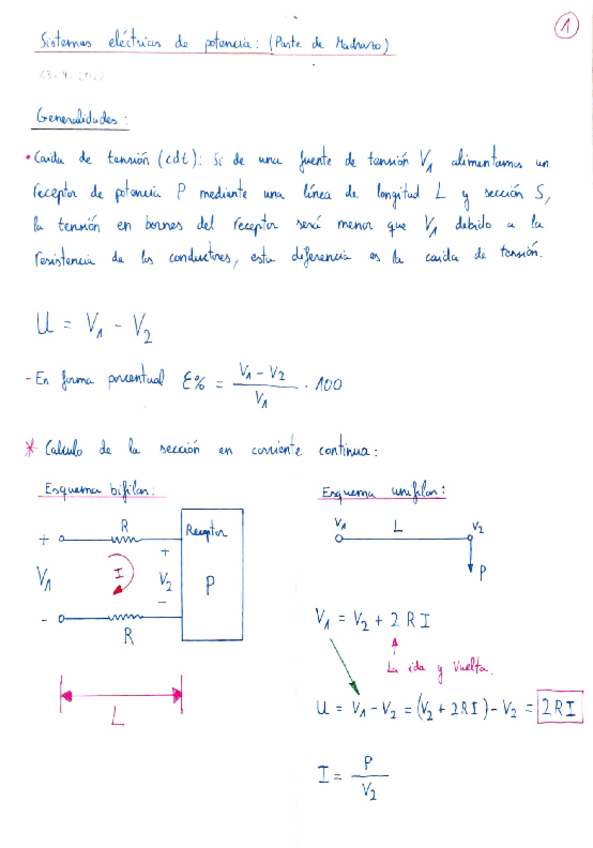 1
Sistemas eléctricos de potencia: (Parte de Madrazo)
13-9-2022
Generalidades:
• Caida de tensión (cdt): Si de una fuente de tensión V1 alimentamos un
receptor de potencia P mediante una línea de longitud L y sección S,
la tensión en bornes del receptor será menor que V1 debido a la
resistencia de los conductores, esta diferencia es la caida de tensión.
U = V1 - V2
- En forma porcentual ε% = (V1 - V2) / V1 · 100
* Calculo de la sección en corriente continua:
Esquema bifilar:
R
Receptor
+
+
V1
I
V2
P
-
-
R
L
Esquema unifilar:
V1
L
V2
P
V1 = V2 + 2 R I
La ida y vuelta.
U = V1 - V2 = (V2 + 2RI) - V2 = 2RI
I = P / V2